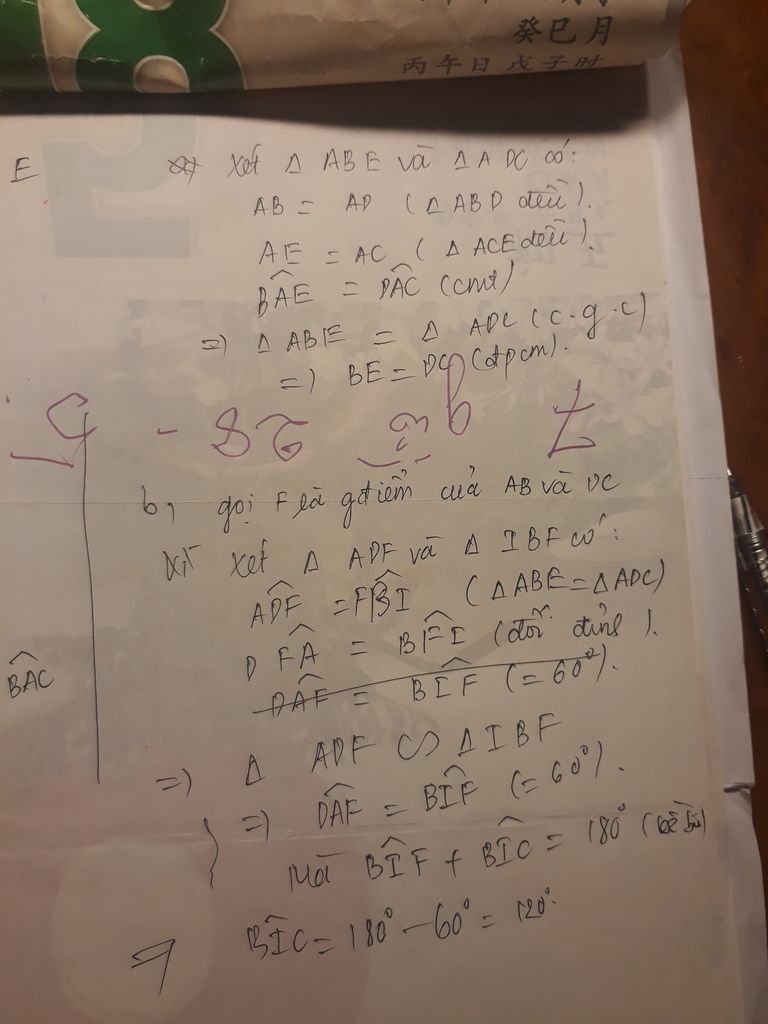 8
癸巳月
丙午日 戊子时
E
Xét Δ ABE và Δ ADC có:
AB = AD (Δ ABD đều).
AE = AC (Δ ACE đều).
B̂AE = D̂AC (cmt)
=) Δ ABE = Δ ADC (c.g.c)
=) BE = DC (đpcm).
b, gọi F là gđiểm của AB và DC
Xét Δ ADF và Δ IBF có:
ADF̂ = FBÎ (Δ ABE = Δ ADC)
DFÂ = BFÎ (đối đỉnh).
DÂF = BÎF (= 60°).
BÂC
=) Δ ADF ∽ Δ IBF
=) DÂF = BÎF (= 60°).
Mà BÎF + BÎC = 180° (kề bù)
BÎC = 180° - 60° = 120°.